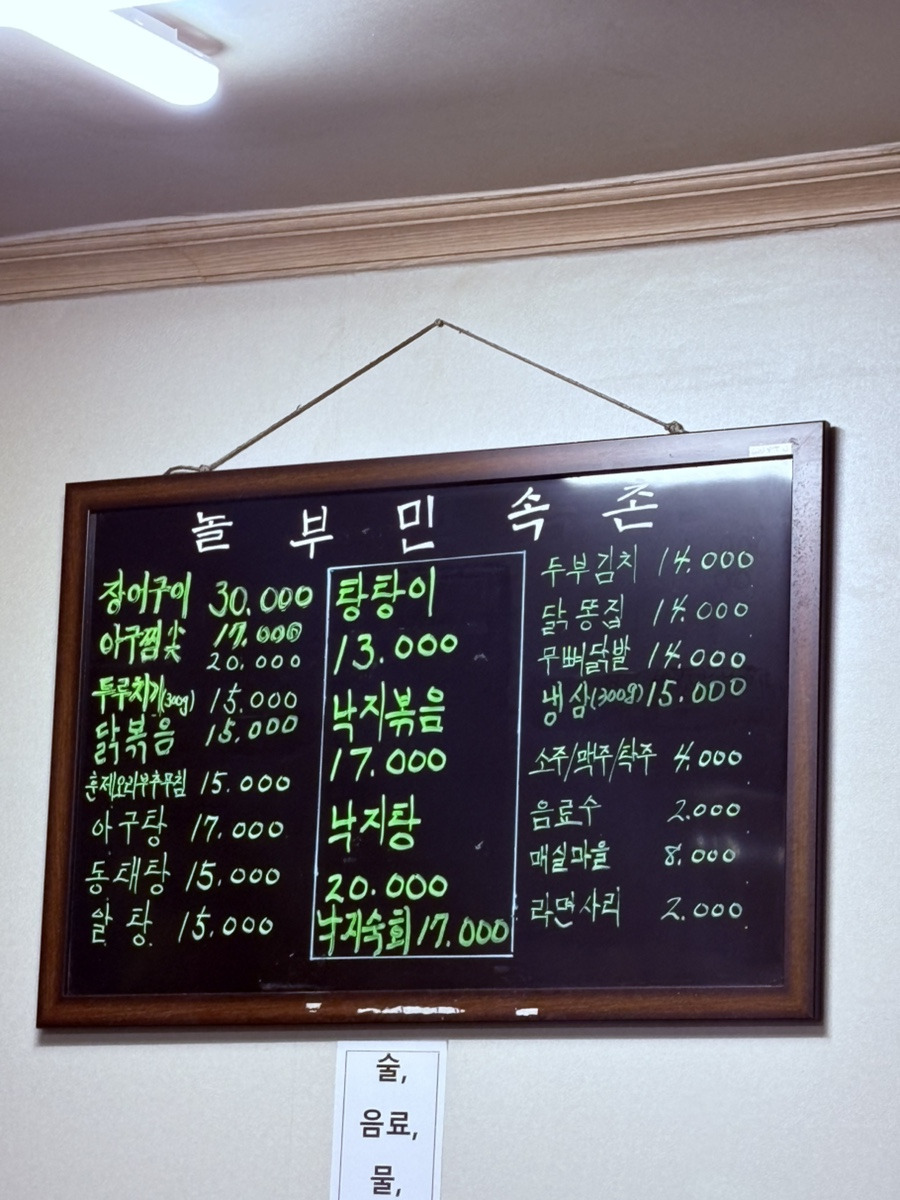 놀부민속촌
장어구이 30.000
아구찜 小 17.000
20.000
두루치기(300g) 15.000
닭볶음 15.000
훈제오리부추무침 15.000
아구탕 17.000
동태탕 15.000
알탕 15.000
탕탕이
13.000
낙지볶음
17.000
낙지탕
20.000
낙지숙회 17.000
두부김치 14.000
닭똥집 14.000
무뼈닭발 14.000
냉삼(300g) 15.000
소주/맥주/탁주 4.000
음료수 2.000
매실마을 8.000
라면사리 2.000
술,
음료,
물,